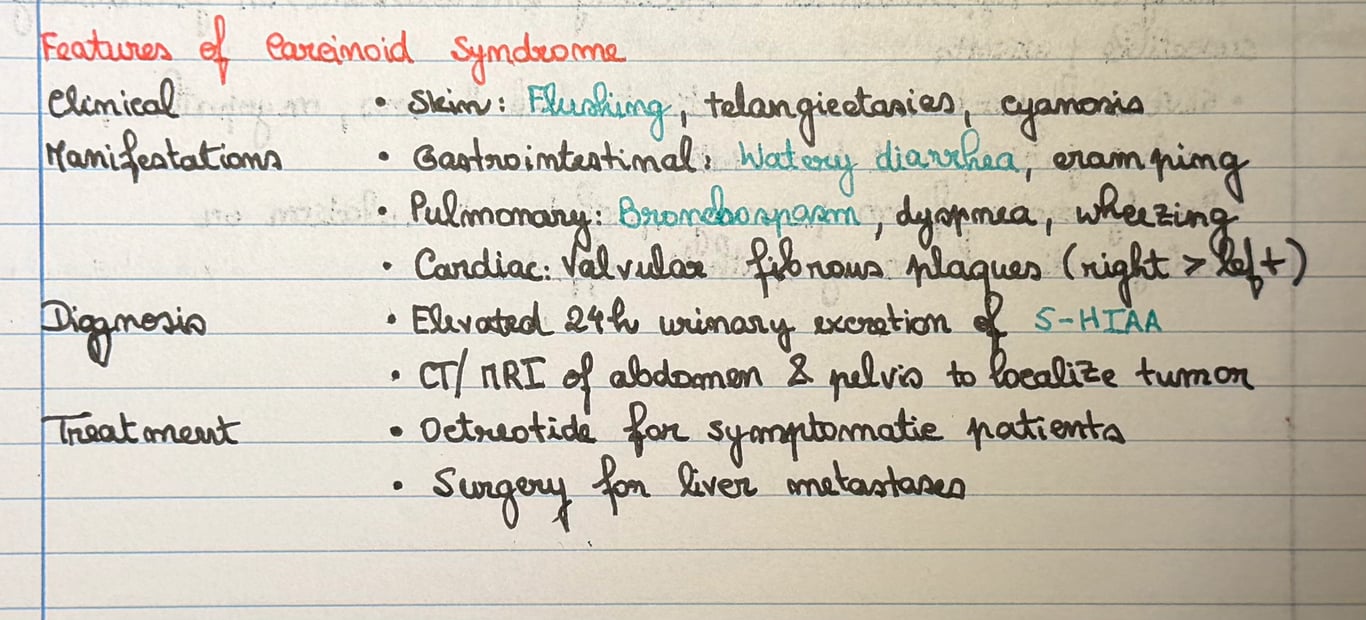 Features of Carcinoid Syndrome
Clinical • Skin: Flushing, telangiectasies, cyanosis
Manifestations • Gastrointestinal: Watery diarrhea, cramping
• Pulmonary: Bronchospasm, dyspnea, wheezing
• Cardiac: Valvular fibrous plaques (right > left)
Diagnosis • Elevated 24h urinary excretion of 5-HIAA
• CT/MRI of abdomen & pelvis to localize tumor
Treatment • Octreotide for symptomatic patients
• Surgery for liver metastases